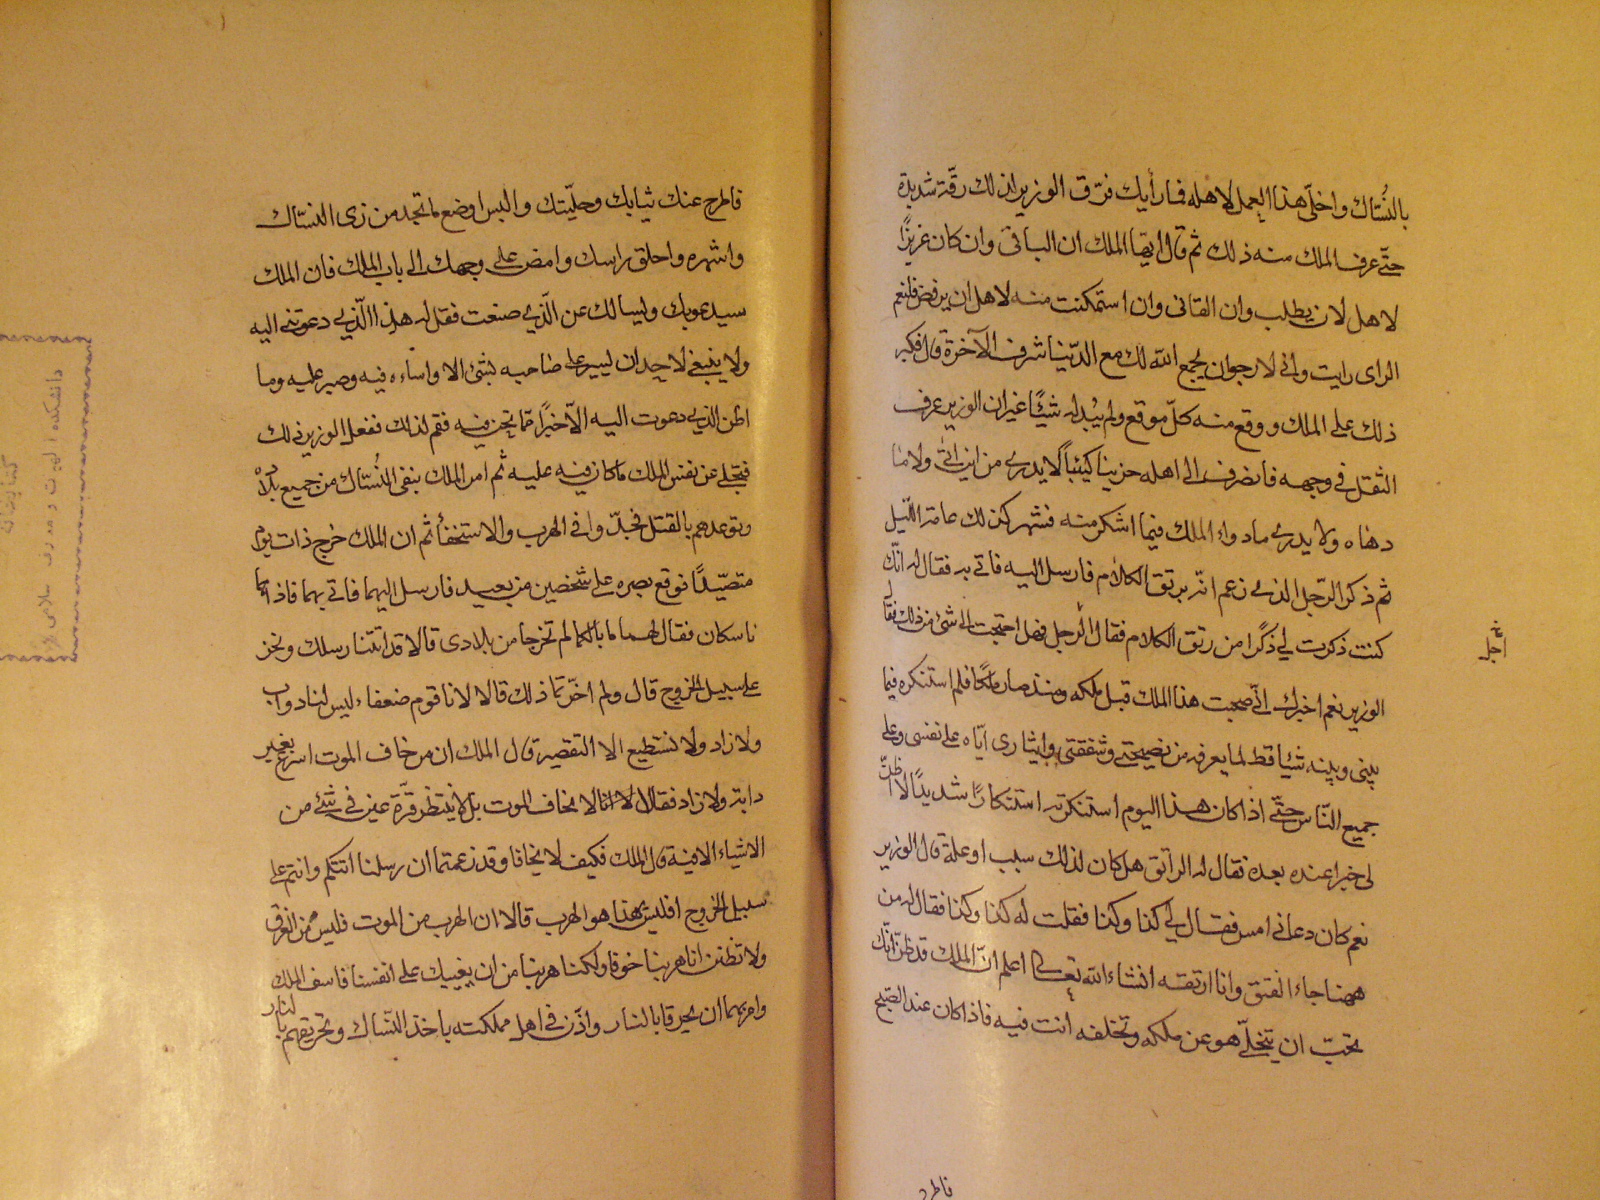 بالنُسّاك واخلّى هذا العمل لاهله فما رأيك فرق الوزير لذلك رقّة شديدة
حتّى عرف الملك منه ذلك ثم قال ايها الملك ان الباقى وان كان عزيزًا
لاهل لان يطلب وان الفانى وان استمكنت منه لاهل ان يرفض فلنعم
الراى رايت وانى لارجوان يجمع الله لك مع الدّنيا شرف الآخرة قال فكبر
ذلك على الملك ووقع منه كلّ موقع ولم يبُد له شيئًا غير ان الوزير عرف
الثقل فى وجهه فانصرف الى اهله حزينا كئيبًا لا يدرى من اين اتىٰ ولا ما
دهاه ولا يدرى ما دواء الملك فيما اشكر منه فشهر كذلك عامة اللّيل
ثم ذكر الرّجل الذى زعم انّه يرتق الكلام فارسل اليه فاتى به فقال له انّك
كنت ذكرت لى ذكرًا من رتق الكلام فقال الرجل فهل احتجت الى شئ من ذلك فقال
اجل
الوزير نعم اخبرك انّى صحبت هذا الملك قبل ملكه ومنذ صار ملكًا فلم استنكره فيما
بينى وبينه شيئا قط لما يعرفه من نصيحتى وشفقتى وايثارى ايّاه على نفسى وعلى
جميع النّاس حتّى اذا كان هذا اليوم استنكرته استنكارًا شديدًا لا اظنّ
لى خيرا عنده بعده فقال له الراتق هل كان لذلك سبب او علة قال الوزير
نعم كان دعانى امس فقال لى كذا وكذا فقلت له كذا وكذا فقال له من
ههنا جاء الفتق وانا ارتقه انشاء الله تعالى اعلم انّ الملك قد ظنّ انّك
تحبّ ان يتخلّى هو عن ملكه وتخلفه انت فيه فاذا كان عند الصّبح
فاطرح
فاطرح عنك ثيابك وحليّتك والبس اوضع ما تجد من زى النسّاك
واشهره واحلق راسك وامض على وجهك الى باب الملك فان الملك
سيدعوبك وليسالك عن الّذى صنعت فقل له هذا الّذى دعوتنى اليه
ولا ينبغى لاحد ان يسير على صاحبه بشئ الا واساءه فيه وصبر عليه وما
اظن الذى دعوت اليه الّا خيرًا ممّا نحن فيه فقم لذلك ففعل الوزير ذلك
فتجلى عن نفس الملك ما كان فيه عليه ثم امر الملك بنفى النُسّاك من جميع بلاده
وتوعدهم بالقتل فجدّوا فى الهرب والاستخفأ ثم ان الملك خرج ذات يوم
متصيّدًا فوقع بصره على شخصين من بعيد فارسل اليهما فاتى بهما فاذا هما
ناسكان فقال لهما ما بالكما لم تخرجا من بلادى قالا قد اتتنا رسلك ونحن
على سبيل الخروج قال ولم اخّرتما ذلك قالا لانا قوم ضعفاء ليس لنا دواب
ولا زاد ولا نستطيع الا التقصير قال الملك ان من خاف الموت اسرع بغير
دابة ولا زاد فقالا له انا لا نخاف الموت بل لا ينتظر قرّة عين فى شئ من
الاشياء الا فيه قال الملك فكيف لا تخافا وقد زعمتما ان رسلنا اتتكم وانتم على
سبيل الخروج افليس هذا هو الهرب قالا ان الهرب من الموت فليس من الفرق
ولا تظنن انا هربنا خوفا ولكنا هربنا من ان يعينك على انفسنا فاسف الملك
وامر بهما ان يحرقا بالنار واذّن فى اهل مملكته باخذ النسّاك وتحريقهم بالنار